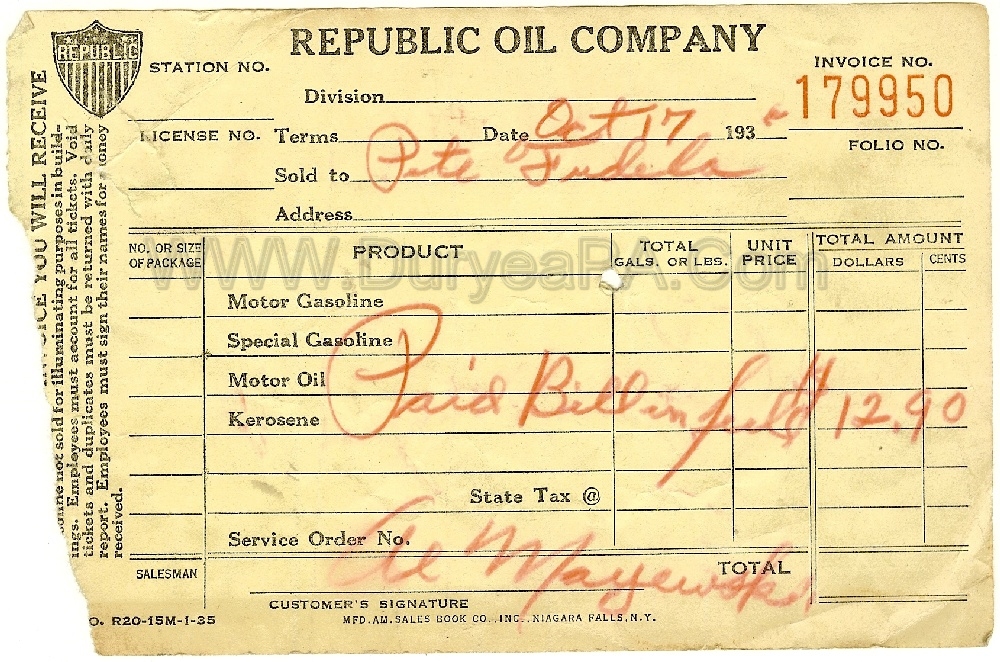 REPUBLIC OIL COMPANY
REPUBLIC
STATION NO.
INVOICE NO.
179950
Division
LICENSE NO.
Terms
Date Oct 17 193
FOLIO NO.
Sold to Pete
Address
NO. OR SIZE OF PACKAGE
PRODUCT
TOTAL GALS. OR LBS.
UNIT PRICE
TOTAL AMOUNT
DOLLARS CENTS
WWW.DuryeaPA.Com
Motor Gasoline
Special Gasoline
Motor Oil
Kerosene
Paid Bill in full $12.90
State Tax @
Service Order No.
Al Mayewski
SALESMAN
TOTAL
CUSTOMER'S SIGNATURE
MFD. AM. SALES BOOK CO., INC., NIAGARA FALLS, N.Y.
O. R20-15M-1-35
YOU WILL RECEIVE
not sold for illuminating purposes in build-
ings. Employees must account for all tickets. Void
tickets and duplicates must be returned with daily
report. Employees must sign their names for money
received.